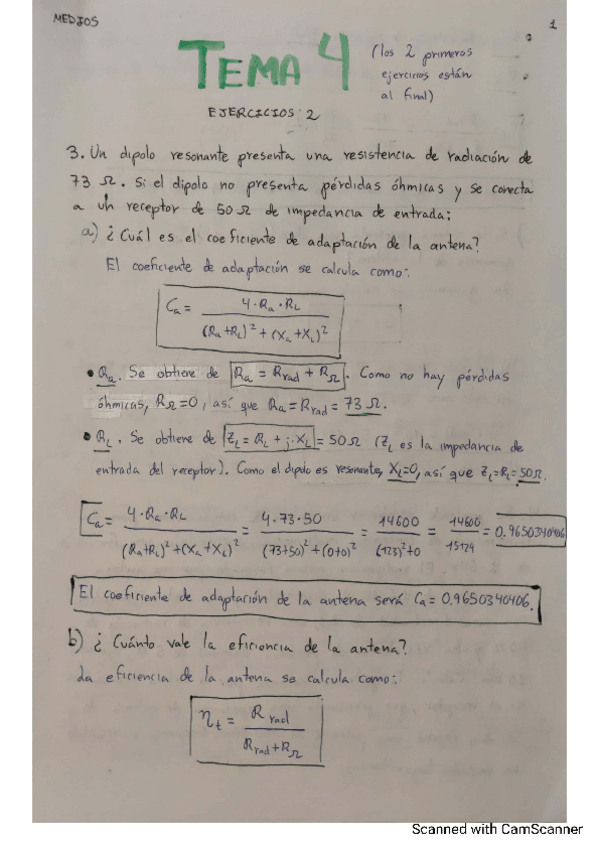 MEDIOS
1
TEMA 4
(los 2 primeros
ejercicios están
al final)
EJERCICIOS 2
3. Un dipolo resonante presenta una resistencia de radiación de
73 Ω. Si el dipolo no presenta pérdidas óhmicas y se conecta
a un receptor de 50 Ω de impedancia de entrada:
a) ¿Cuál es el coeficiente de adaptación de la antena?
El coeficiente de adaptación se calcula como:
Ca = 4·Ra·RL / (Ra+RL)² + (Xa+XL)²
• Ra. Se obtiene de Ra = Rrad + RΩ. Como no hay pérdidas
óhmicas, RΩ=0, así que Ra = Rrad = 73 Ω.
• RL. Se obtiene de ZL = RL + j·XL = 50Ω (ZL es la impedancia de
entrada del receptor). Como el dipolo es resonante, XL=0, así que ZL=RL=50Ω.
Ca = 4·Ra·RL / (Ra+RL)²+(Xa+XL)² = 4·73·50 / (73+50)²+(0+0)² = 14600 / (123)²+0 = 14600 / 15129 = 0.9650340406
El coeficiente de adaptación de la antena será Ca = 0,9650340406.
b) ¿Cuánto vale la eficiencia de la antena?
La eficiencia de la antena se calcula como:
ηt = Rrad / Rrad + RΩ
Scanned with CamScanner